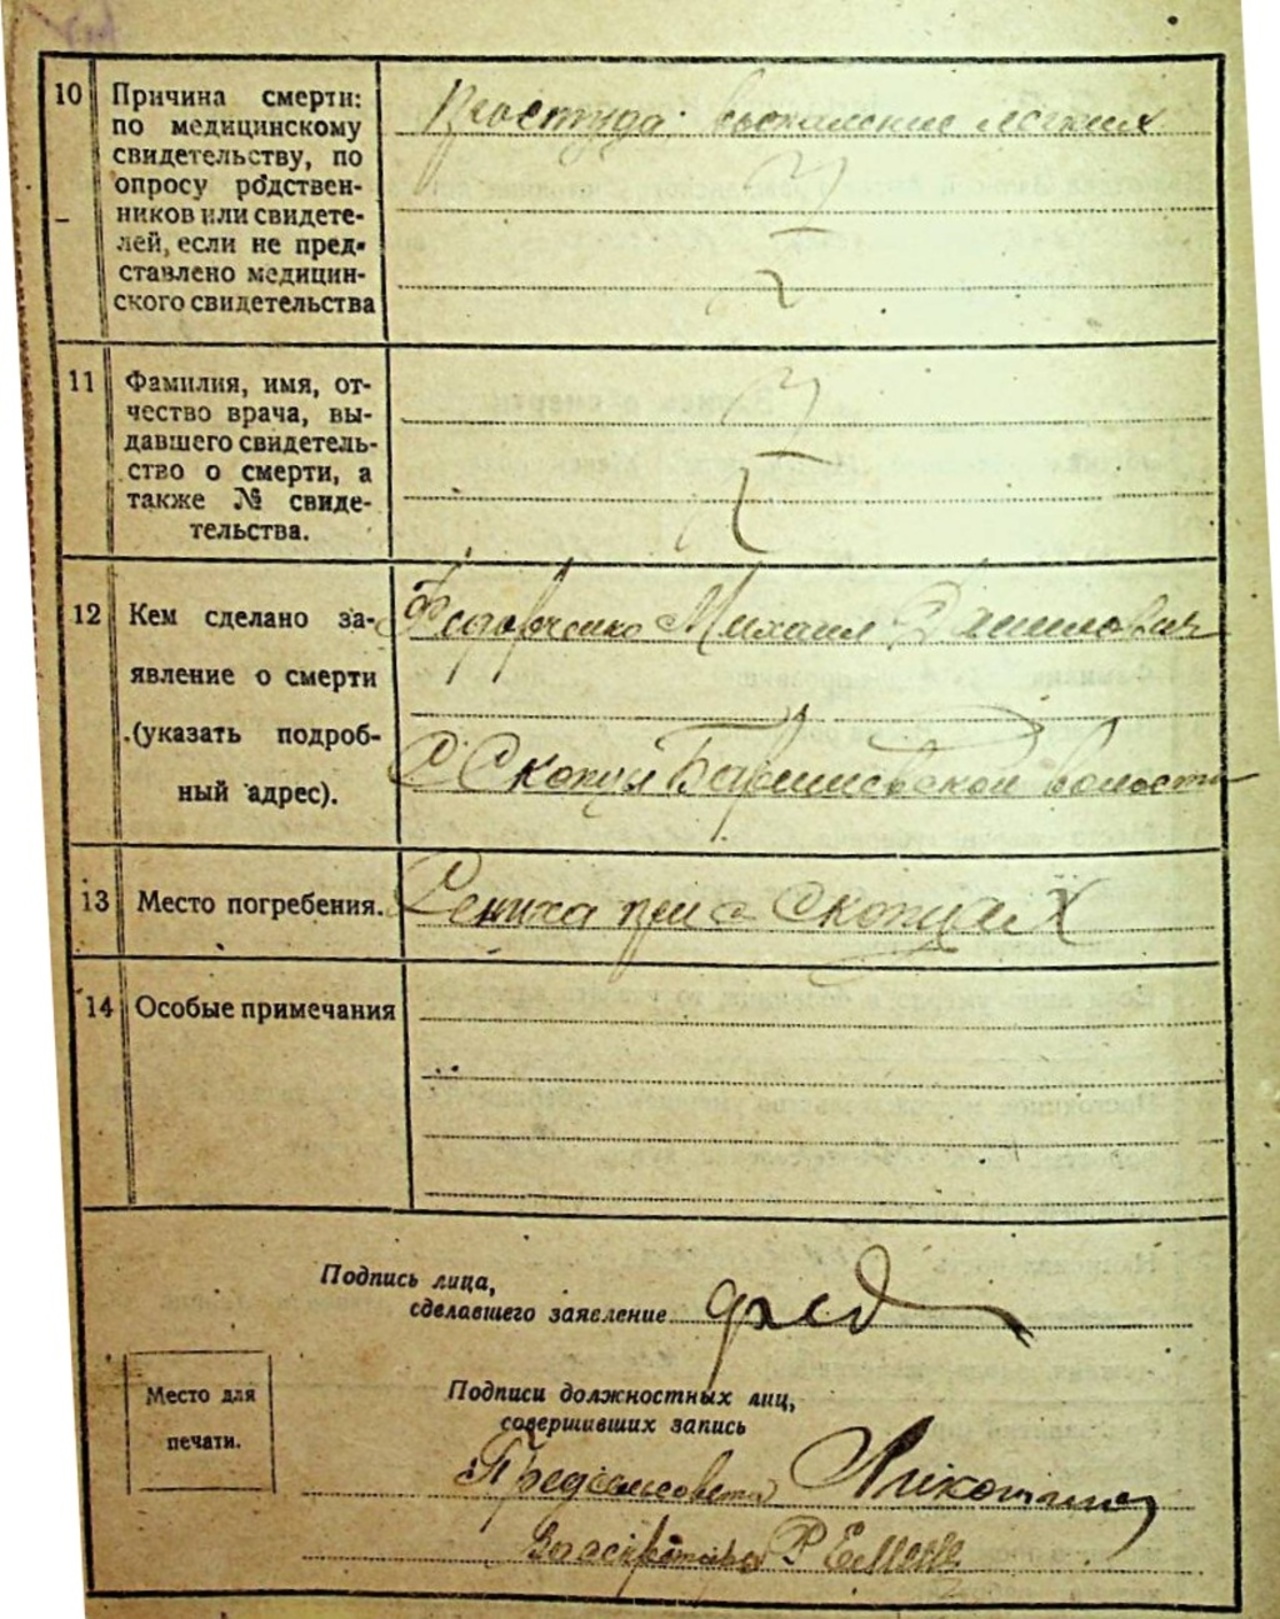 10
Причина смерти:
по медицинскому
свидетельству, по
опросу родствен-
ников или свидете-
лей, если не пред-
ставлено медицин-
ского свидетельства
Простуда: воспаление легких
11
Фамилия, имя, от-
чество врача, вы-
давшего свидетель-
ство о смерти, а
также № свиде-
тельства.
12
Кем сделано за-
явление о смерти
(указать подроб-
ный адрес).
Михаил Данилович
С Скопци Баришевской волости
13
Место погребения.
при с Скопцах
14
Особые примечания
Подпись лица,
сделавшего заявление
Место для
печати.
Подписи должностных лиц,
совершивших запись
Предсельсовета